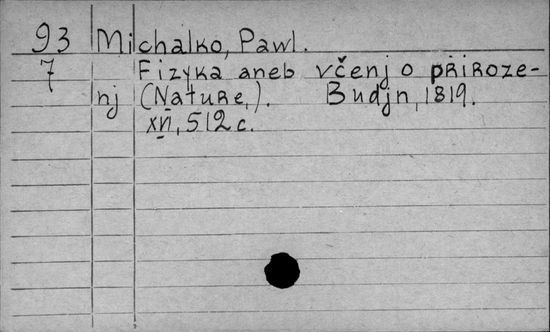 93 Michalko, Pawl.
7 Fizyka aneb včenj o přiroze-
nj (Nature,). Budjn, 1819.
XII, 512 c.